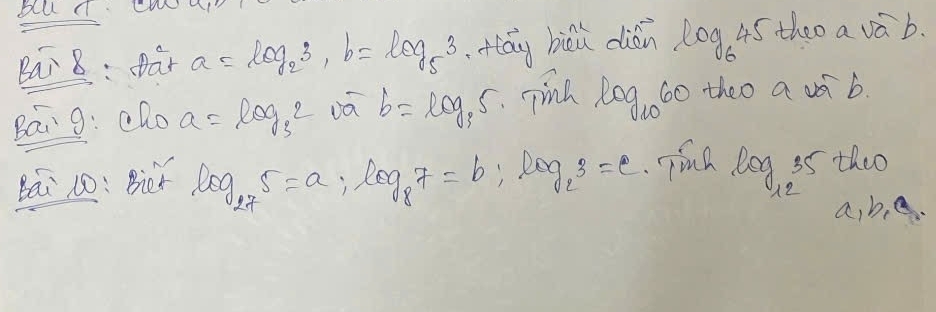 Bài 8: Đặt a = log₂3, b = log₅3. Hãy biểu diễn log₆45 theo a và b.
Bài 9: Cho a = log₃2 và b = log₃5. Tính log₁₀60 theo a và b.
Bài 10: Biết log₂₇5 = a; log₈7 = b; log₂3 = c. Tính log₁₂35 theo
a, b, c.